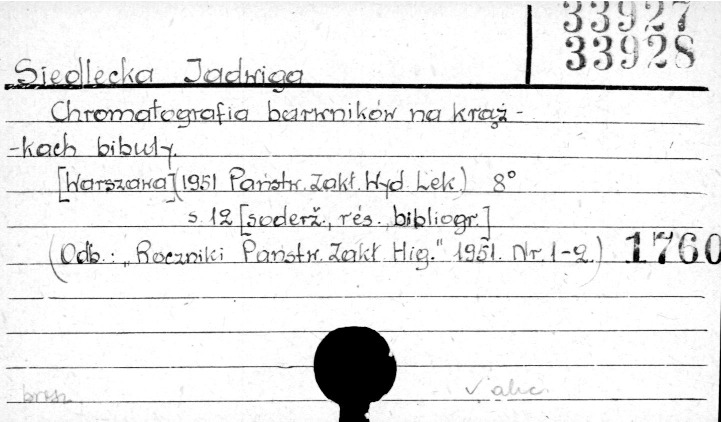 33927
33928
Siedlecka Jadwiga
Chromatografia barwników na krąż-
-kach bibuły.
[Warszawa] (1951 Państw. Zakł. Wyd. Lek.) 8°
s. 12 [soderž., rés., bibliogr.]
(Odb.: „Roczniki Państw. Zakł. Hig." 1951. Nr. 1-2.) 1760
brosz.